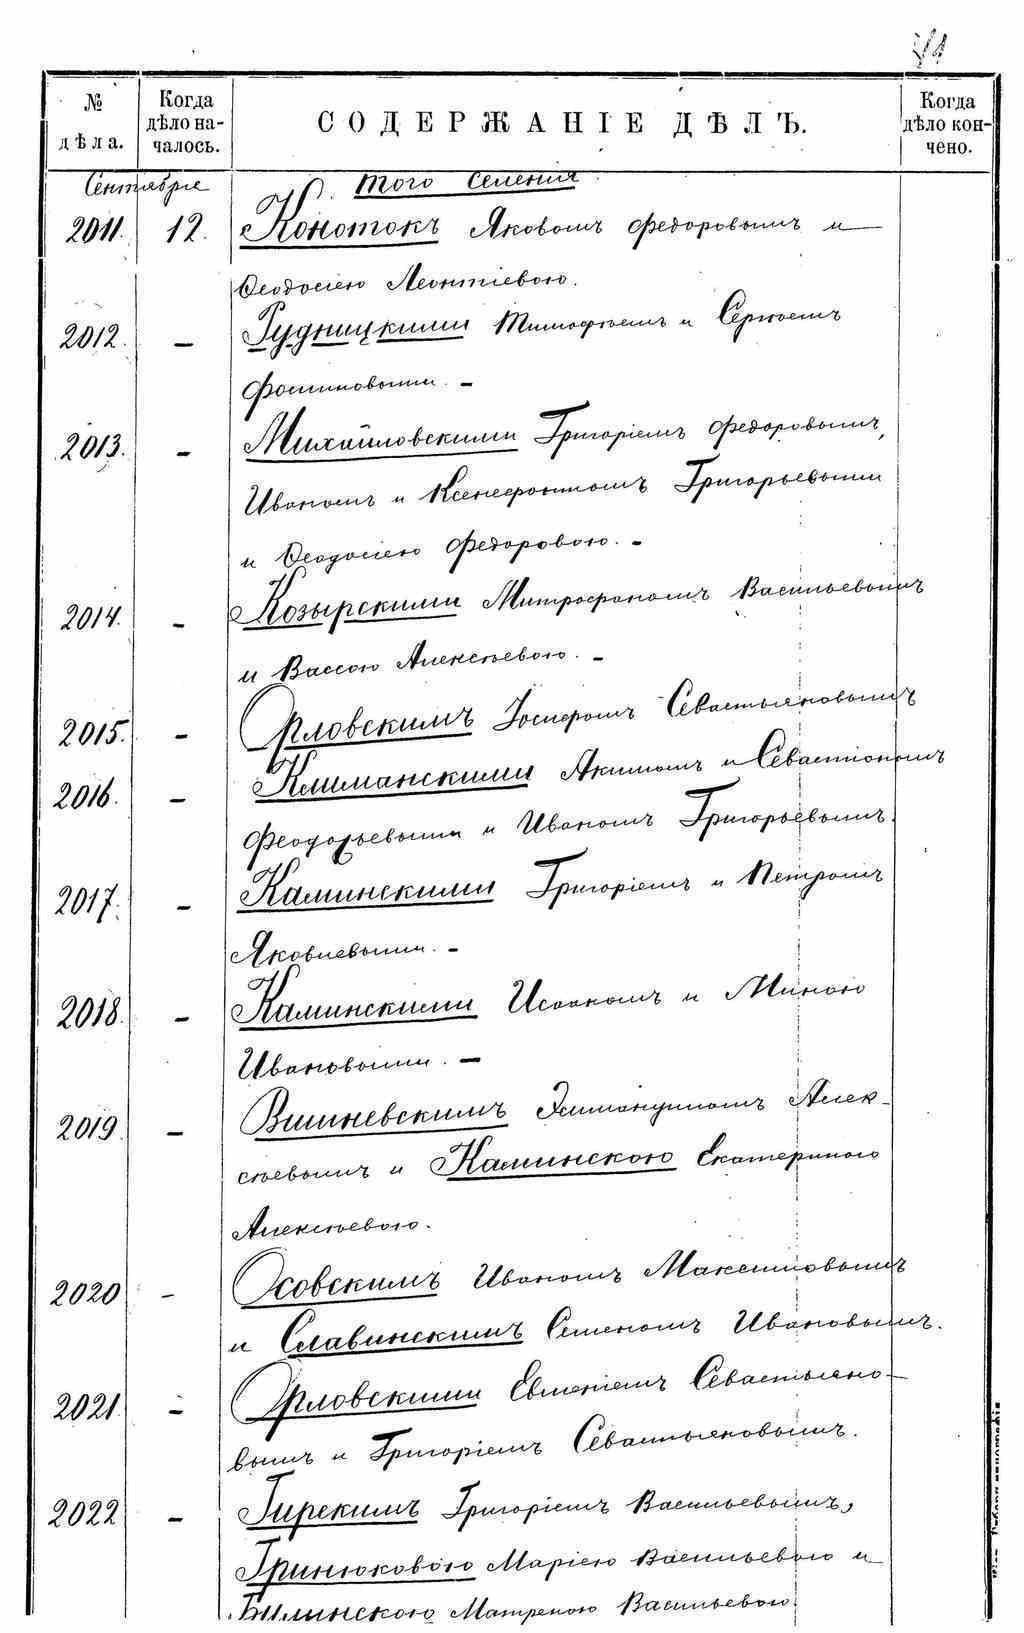 № дѣла. Когда дѣло началось. СОДЕРЖАНІЕ ДѢЛЪ. Когда дѣло кончено.
Сентября Того селенія
2011. 12. Конотокъ Яковомъ Федоровымъ и
Ѳеодосіею Леонтіевою.
2012. — Рудницкими Тимофѣемъ и Сергѣемъ
Фоминовыми. —
2013. — Михайловскими Григоріемъ Федоровымъ,
Иваномъ и Ксенефонтомъ Григорьевыми
и Ѳеодосіею Федоровою. —
2014. — Козырскими Митрофаномъ Васильевымъ
и Вассою Алексѣевою. —
2015. — Орловскимъ Іосифомъ Севастьяновымъ
2016. — Климанскими Акимомъ и Севастіономъ
и Иваномъ Григорьевымъ.
2017. — Каминскими Григоріемъ и Петромъ
Яковлевыми. —
2018. — Каминскими Исаакомъ и Миною
Ивановыми. —
2019. — Вишневскимъ Эммануиломъ Алек-
сѣевымъ и Каминскою Екатериною
Алексѣевою.
2020 — Осовскимъ Иваномъ Максимовымъ
и Славинскимъ Семеномъ Ивановымъ.
2021 — Орловскими Евменіемъ Севастьяно-
вымъ и Григоріемъ Севастьяновымъ.
2022 — Гирскимъ Григоріемъ Васильевымъ,
Гринюковою Маріею Васильевою и
Билинскою Матреною Васильевою.